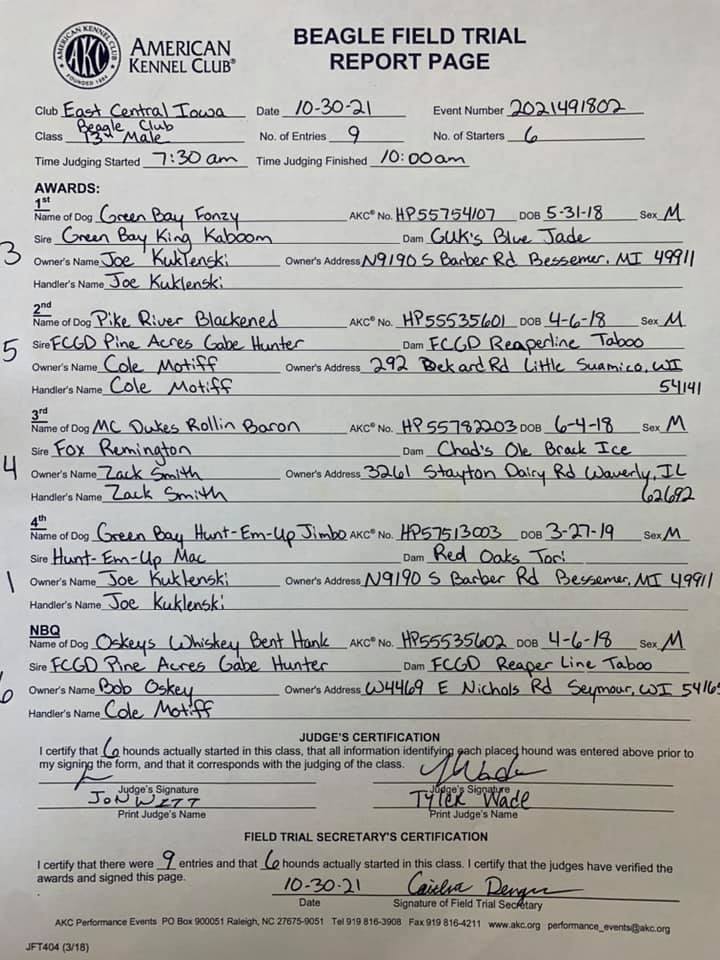 AMERICAN KENNEL CLUB
AKC
FOUNDED 1884
AMERICAN
KENNEL CLUB®
BEAGLE FIELD TRIAL
REPORT PAGE
Club East Central Iowa Date 10-30-21 Event Number 2021491802
Beagle Club
Class 13" Male No. of Entries 9 No. of Starters 6
Time Judging Started 7:30 am Time Judging Finished 10:00am
AWARDS:
1st
Name of Dog Green Bay Fonzy AKC® No. HP55754107 DOB 5-31-18 Sex M
Sire Green Bay King Kaboom Dam GUK's Blue Jade
3 Owner's Name Joe Kuklenski Owner's Address N9190 S Barber Rd Bessemer, MI 49911
Handler's Name Joe Kuklenski
2nd
Name of Dog Pike River Blackened AKC® No. HP55535601 DOB 4-6-18 Sex M
5 Sire FCGD Pine Acres Gabe Hunter Dam FCGD Reaperline Taboo
Owner's Name Cole Motiff Owner's Address 292 Dekard Rd Little Suamico, WI
Handler's Name Cole Motiff 54141
3rd
Name of Dog MC Dukes Rollin Baron AKC® No. HP55782203 DOB 6-4-18 Sex M
Sire Fox Remington Dam Chad's Ole Brack Ice
4 Owner's Name Zack Smith Owner's Address 3261 Stayton Dairy Rd Waverly, IL
Handler's Name Zack Smith 62692
4th
Name of Dog Green Bay Hunt-Em-Up Jimbo AKC® No. HP57513003 DOB 3-27-19 Sex M
Sire Hunt-Em-Up Mac Dam Red Oaks Tori
1 Owner's Name Joe Kuklenski Owner's Address N9190 S Barber Rd Bessemer, MI 49911
Handler's Name Joe Kuklenski
NBQ
Name of Dog Oskeys Whiskey Bent Hank AKC® No. HP55535602 DOB 4-6-18 Sex M
Sire FCGD Pine Acres Gabe Hunter Dam FCGD Reaper Line Taboo
6 Owner's Name Bob Oskey Owner's Address W4469 E Nichols Rd Seymour, WI 54165
Handler's Name Cole Motiff
JUDGE'S CERTIFICATION
I certify that 6 hounds actually started in this class, that all information identifying each placed hound was entered above prior to
my signing the form, and that it corresponds with the judging of the class.
Judge's Signature TWade Judge's Signature
Jon Witt Tyler Wade
Print Judge's Name Print Judge's Name
FIELD TRIAL SECRETARY'S CERTIFICATION
I certify that there were 9 entries and that 6 hounds actually started in this class. I certify that the judges have verified the
awards and signed this page.
10-30-21
Date Signature of Field Trial Secretary
AKC Performance Events PO Box 900051 Raleigh, NC 27675-9051 Tel 919 816-3908 Fax 919 816-4211 www.akc.org performance_events@akc.org
JFT404 (3/18)